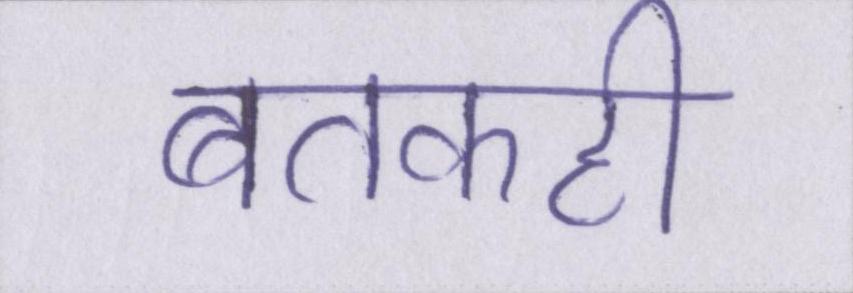 बतकही